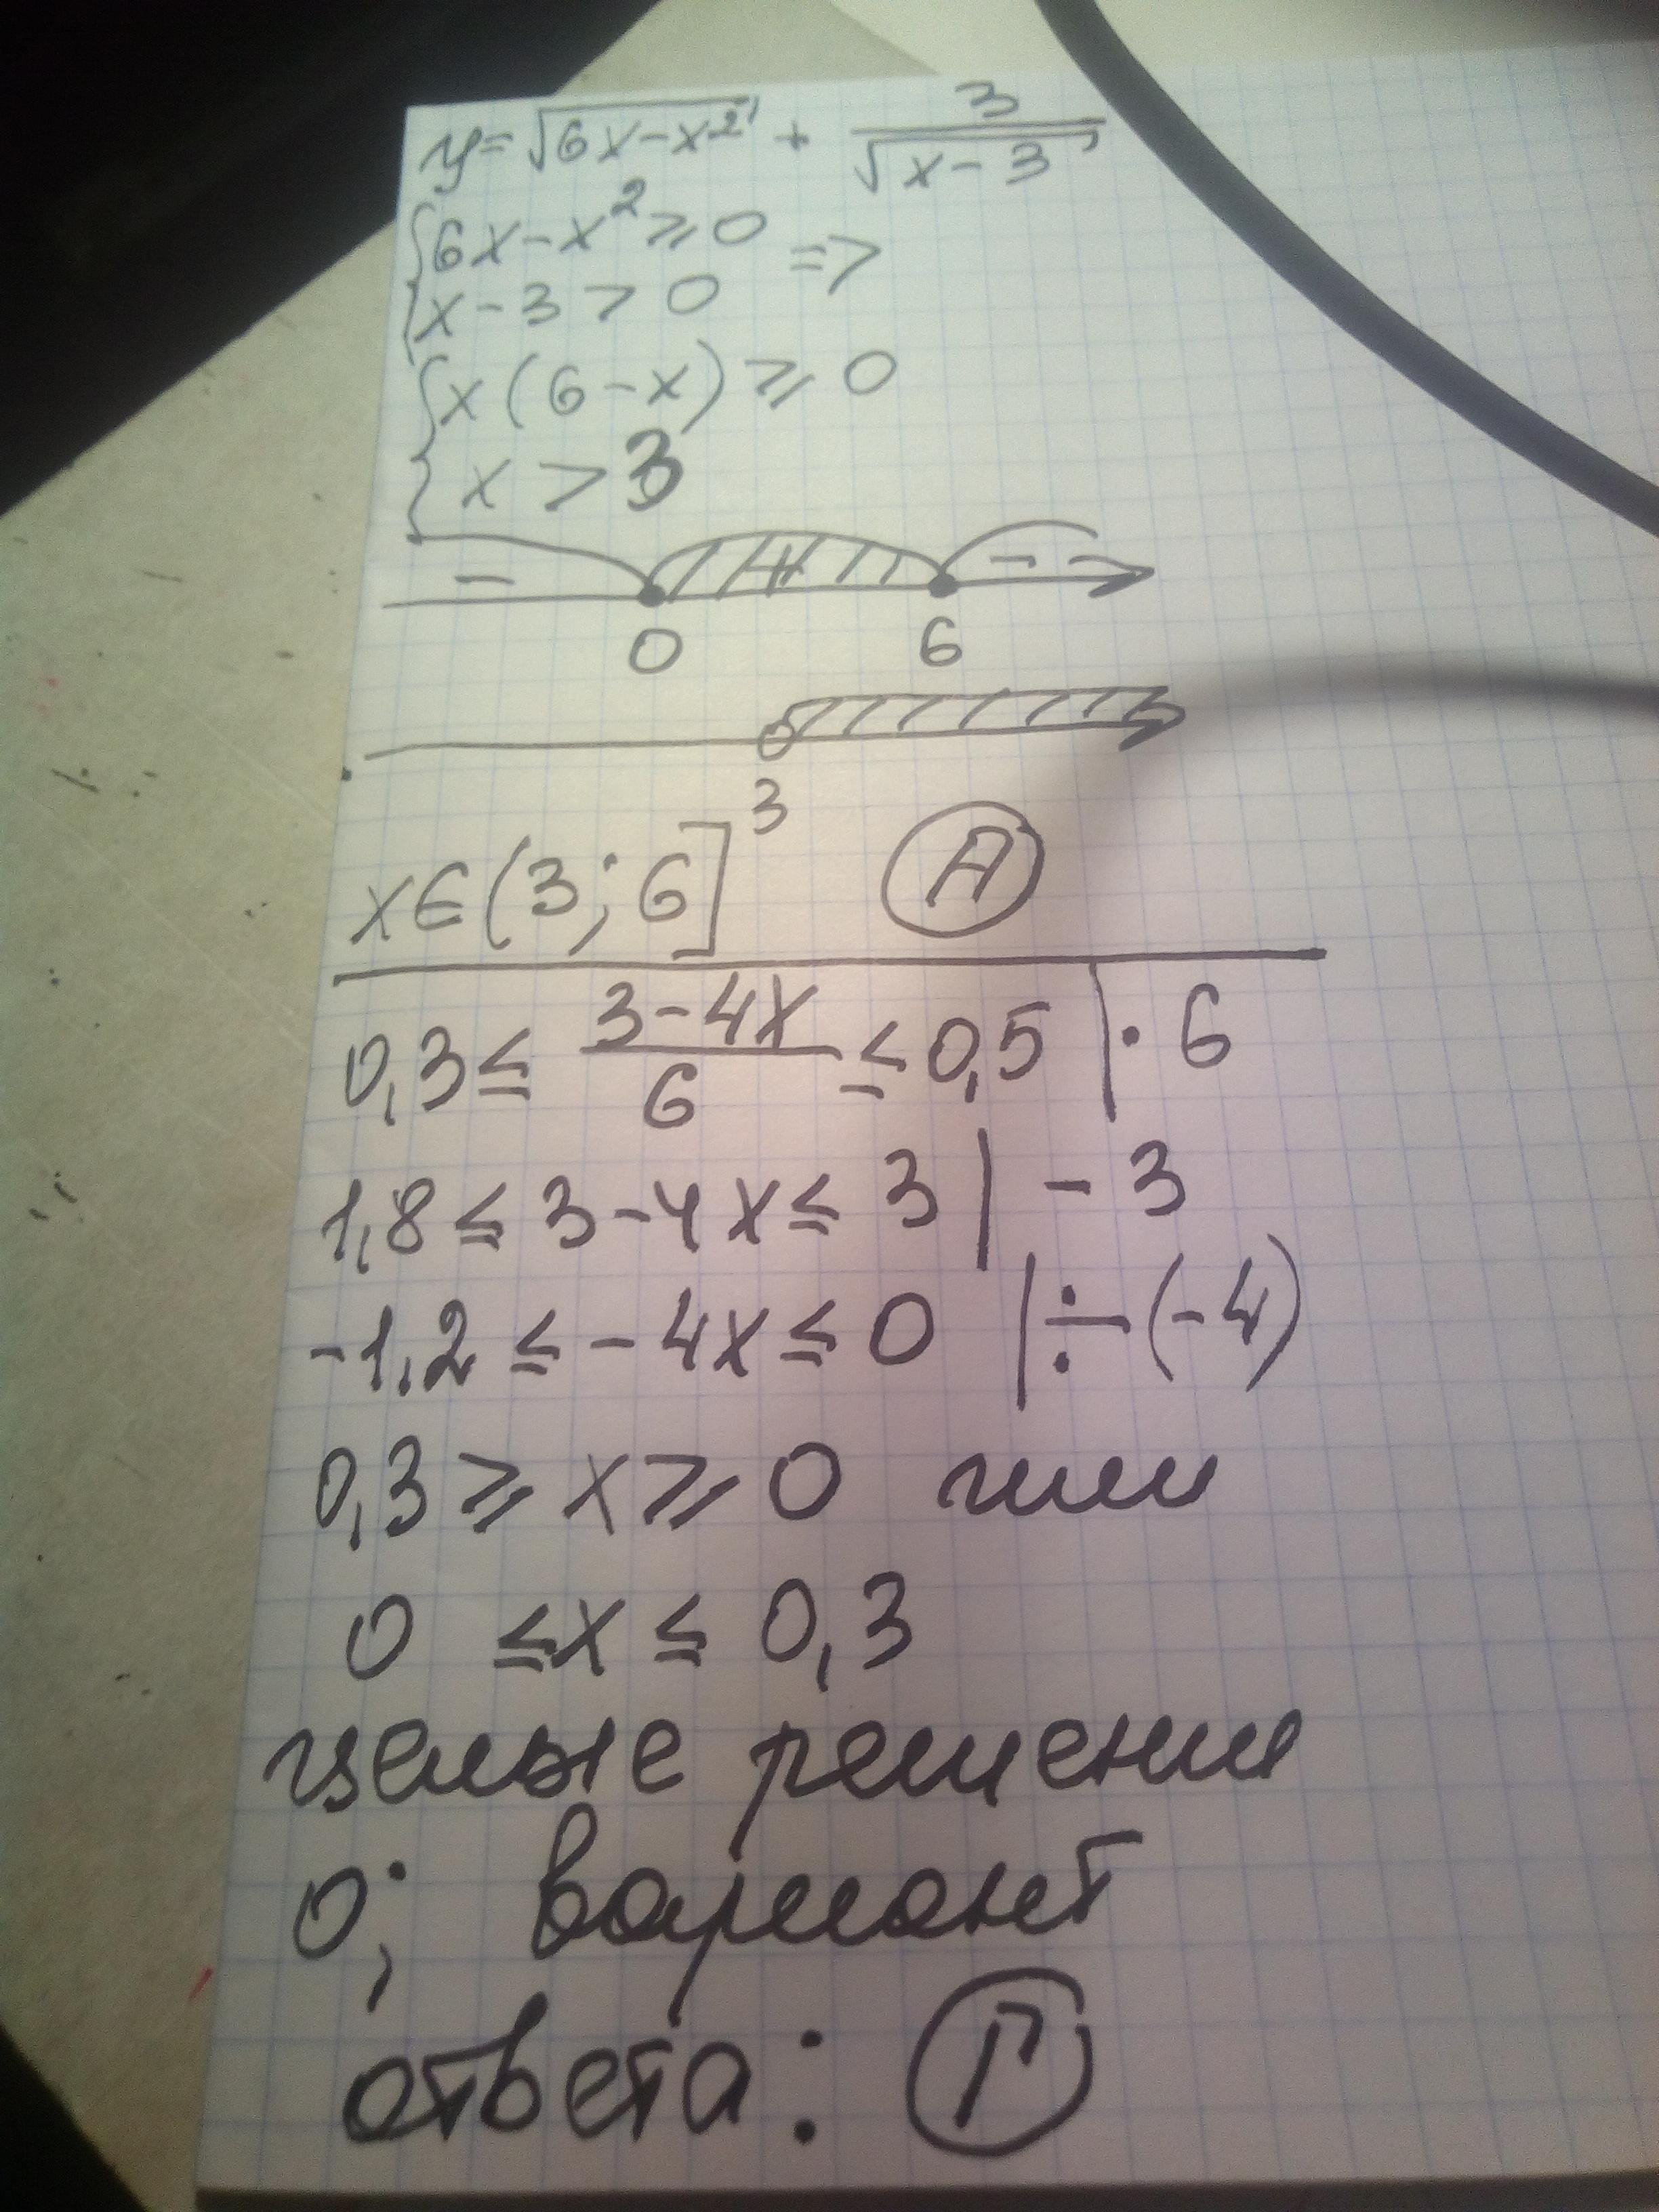 y = √(6x - x²) + 3/√(x - 3)
{ 6x - x² ⩾ 0 =>
{ x - 3 > 0
{ x (6 - x) ⩾ 0
{ x > 3
- + - -
0 6
3
x ∈ (3; 6] А
0,3 ≤ (3 - 4x)/6 ≤ 0,5 | · 6
1,8 ≤ 3 - 4x ≤ 3 | - 3
-1,2 ≤ - 4x ≤ 0 | ÷ (-4)
0,3 ⩾ x ⩾ 0 или
0 ≤ x ≤ 0,3
целые решении
0; вариант
ответа: Г